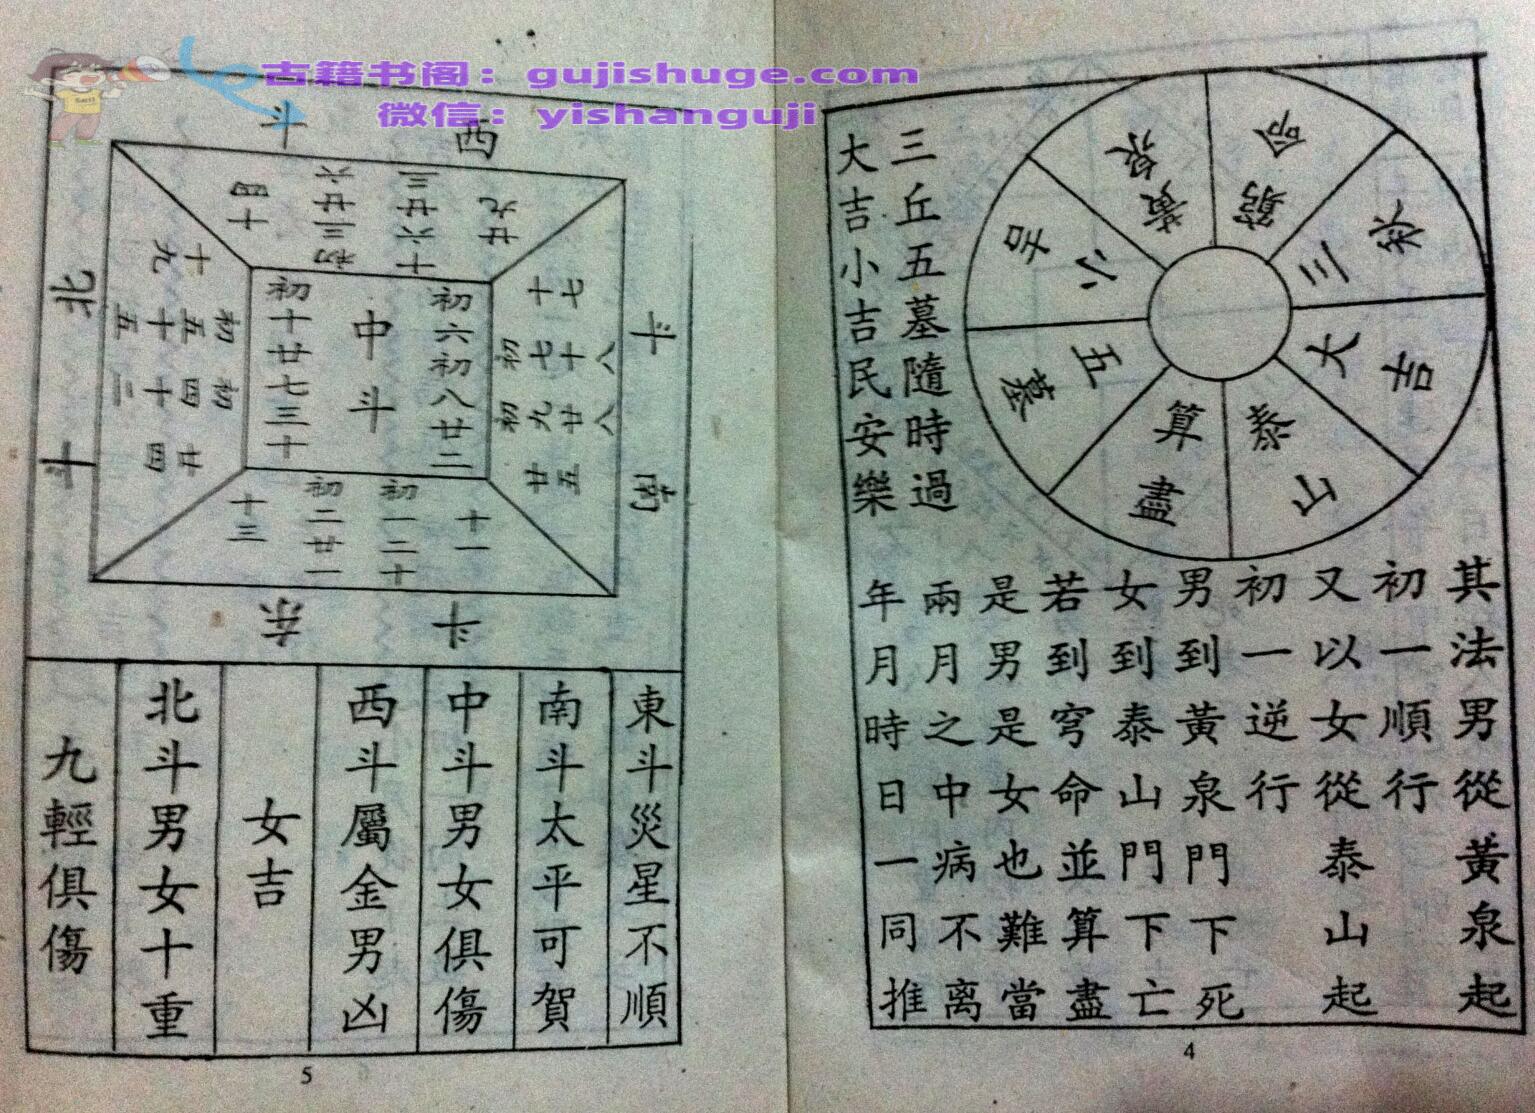 古籍书阁：gujishuge.com
微信：yishanguji
黃泉
窮命
三秋
大吉
泰山
算盡
五墓
小吉
三丘五墓隨時過
大吉小吉民安樂
其法男從黃泉起
初一順行
又以女從泰山起
初一逆行
男到黃泉門下死
女到泰山門下亡
若到穹命並算盡
是男是女也難當
兩月之中病不离
年月時日一同推
4
西斗
十四
初三廿六
十六廿三
廿九
南斗
十七
初七十八
初九廿八
廿五
中斗
初六初八廿二
初十廿七三十
北斗
十九
初五十五
初四十二
廿四
东斗
十一
初一二十
初二廿一
十三
東斗災星不順
南斗太平可賀
中斗男女俱傷
西斗屬金男凶
女吉
北斗男女十重
九輕俱傷
5